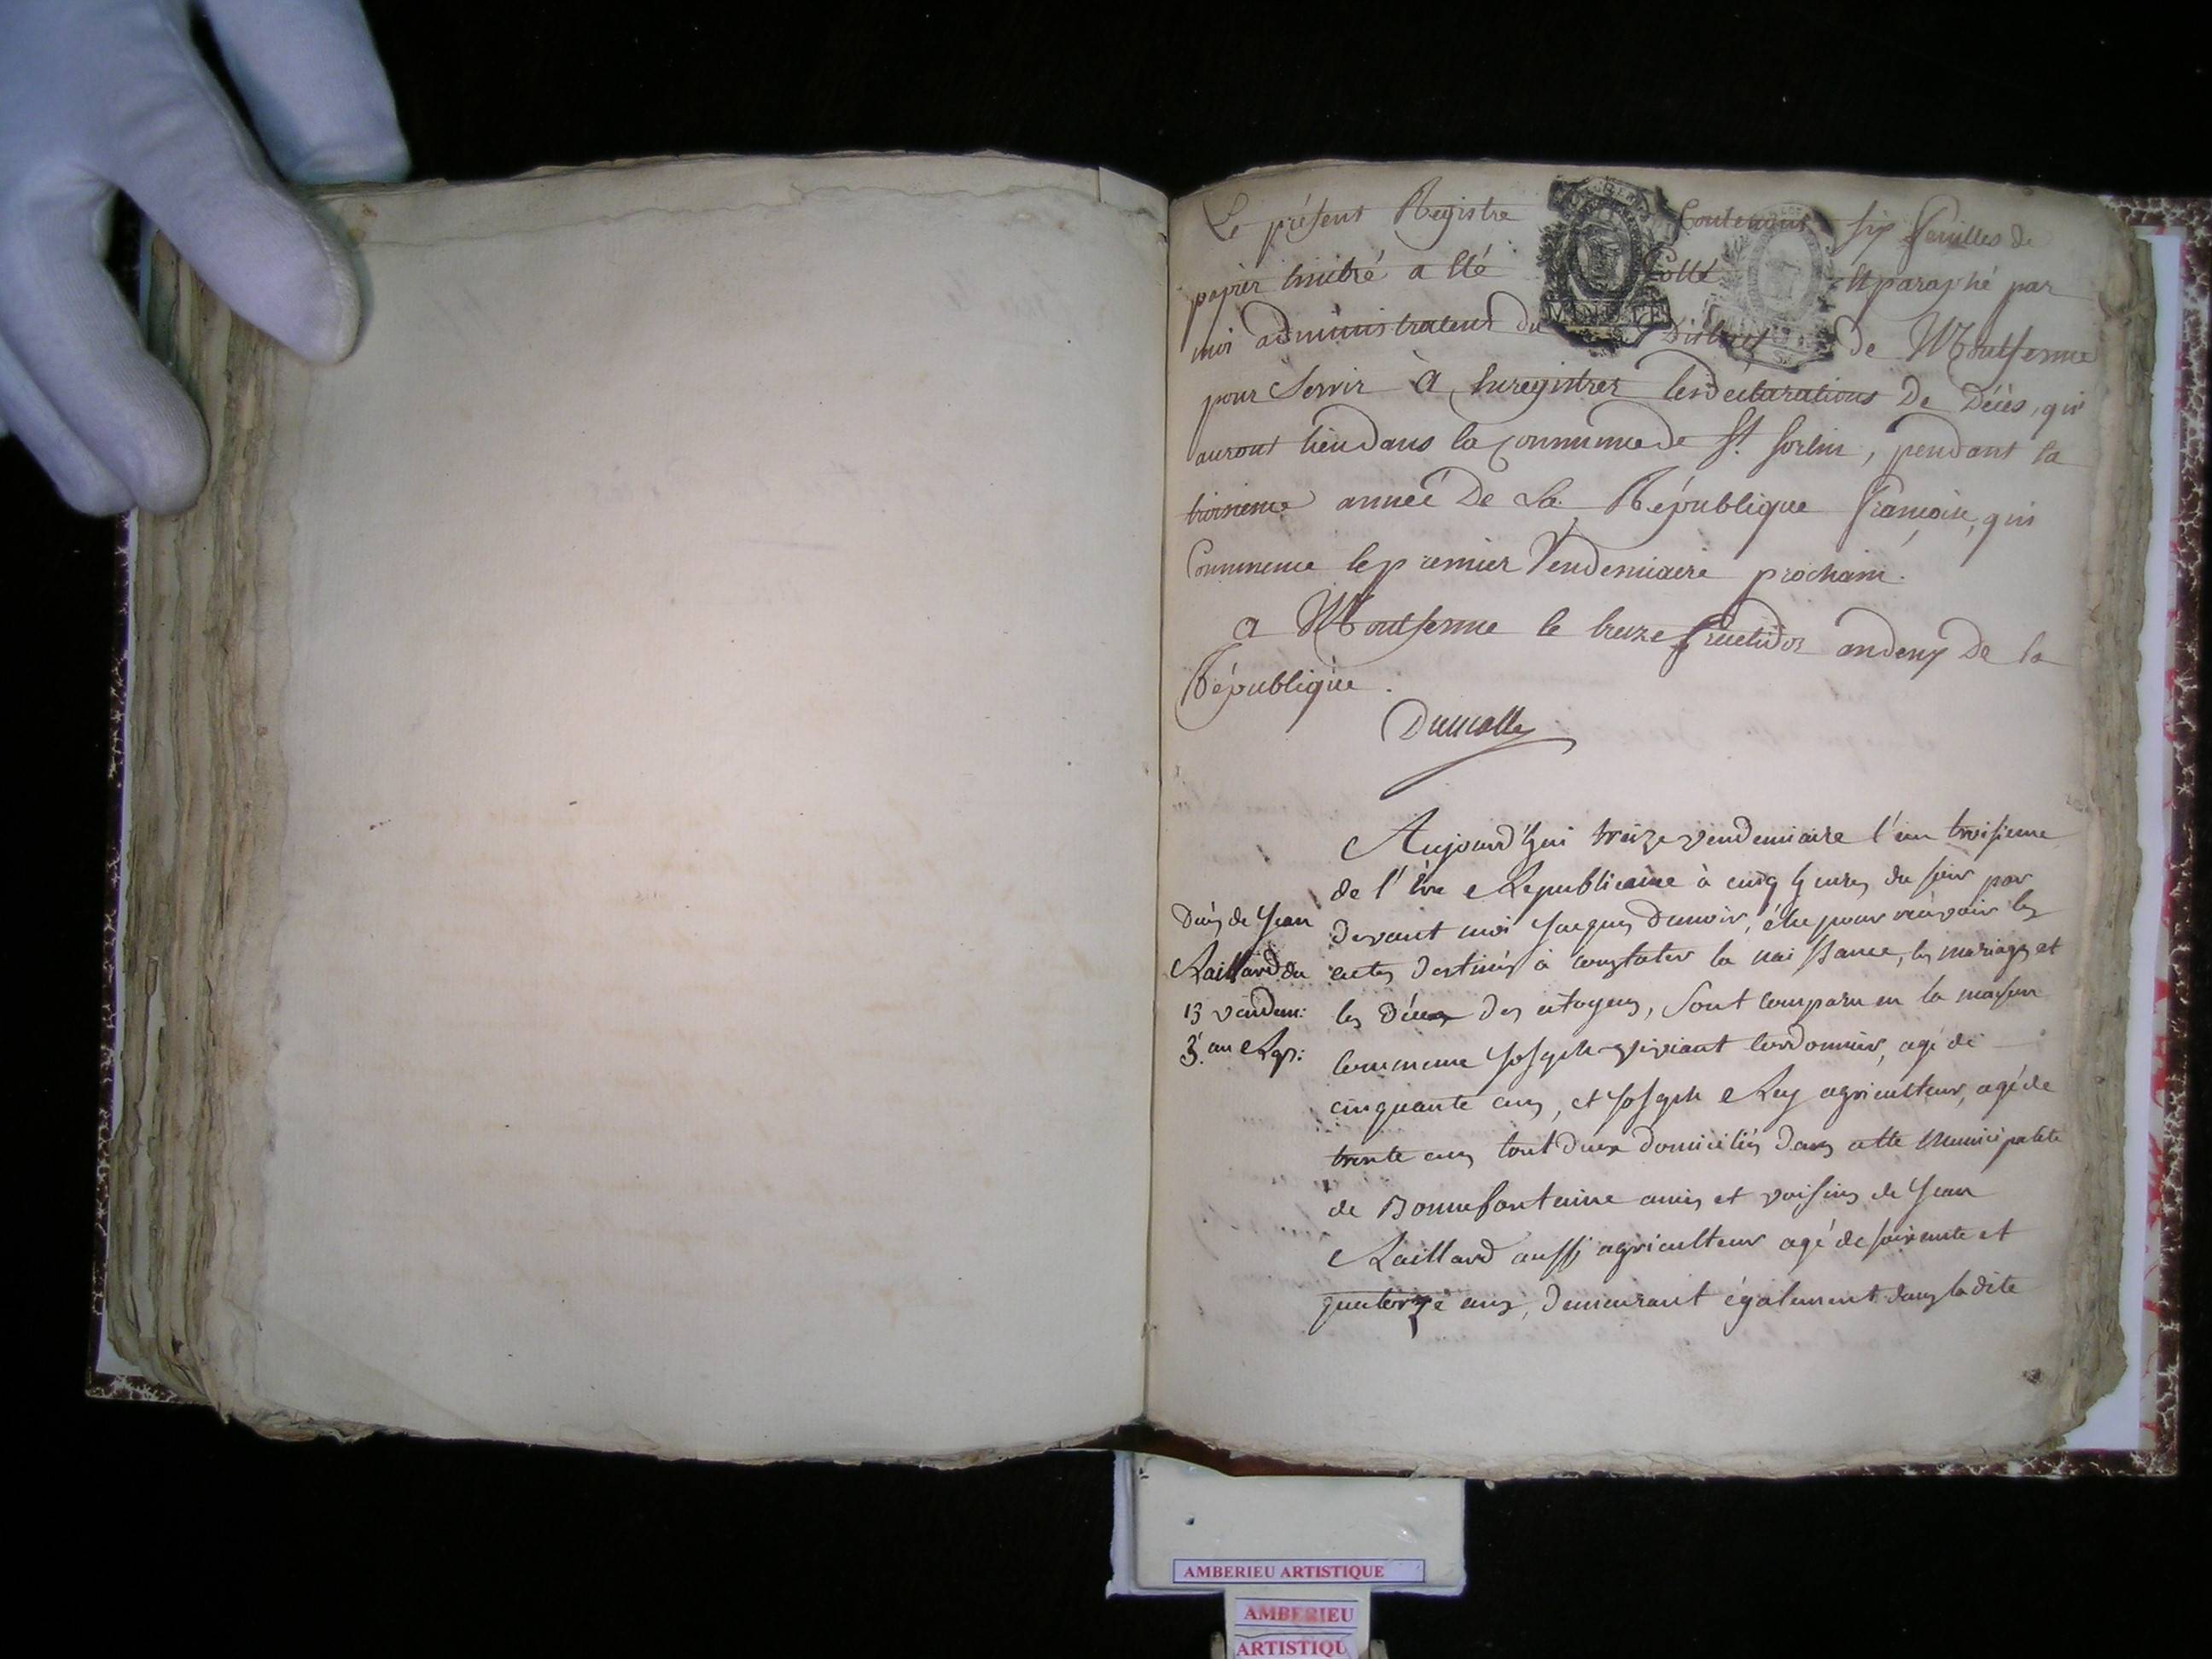 Le présent Registre Contenant six feuilles de
papier timbré a été Cotté et paraphé par
moi administrateur du District de Montferme
pour Servir à Enregistrer les declarations De Décès, qui
auront lieu dans la Commune de St. Sorlin, pendant la
troisieme année De La République françoise, qui
Commence le premier Vendemiaire prochain.
a Montferme le treize fructidor an deux De la
République.
MINUTE
Aujourd'hui treize vendemiaire l'an troisieme
de l'Ere Republicaine à cinq heures du soir par
devant moi Jacques Dunoir, élu pour recevoir les
actes destinés à constater la naissance, les mariages et
les Décès des citoyens, Sont comparu en la maison
commune Joseph Viviant cordonnier, agé de
cinquante ans, et Joseph Rey agriculteur, agé de
trente ans tout deux domiciliés dans cette Municipalité
de Bonnefontaine amis et voisins de Jean
Raillard aussi agriculteur agé de soixante et
quatorze ans, demeurant également dans ladite
Décès de Jean
Raillard du
13 vendem:
3e. an Rep:
AMBERIEU ARTISTIQUE
AMBERIEU
ARTISTIQU